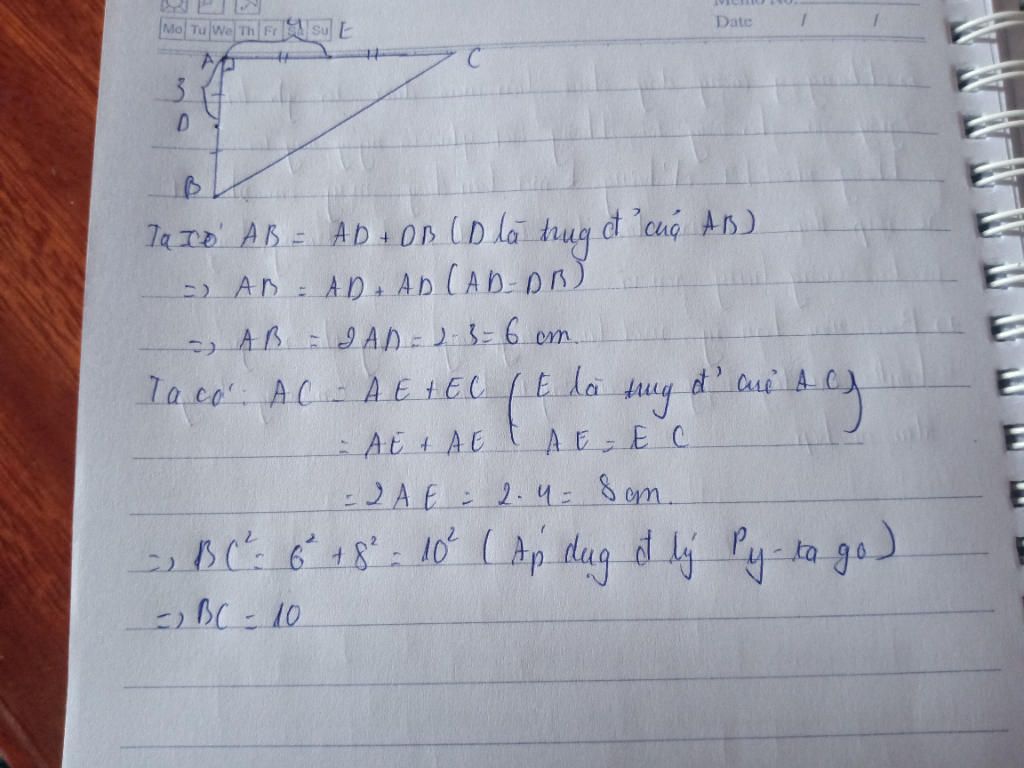 Memo No.
Mo Tu We Th Fr Sa Su
Date / /
4
E
A
C
3
D
B
Ta có AB = AD + DB (D là trug đ' của AB)
=> AB = AD + AD (AD = DB)
=> AB = 2AD = 2.3 = 6 cm.
Ta có: AC = AE + EC (E là trug đ' của AC)
= AE + AE AE = EC
= 2AE = 2.4 = 8 cm.
=> BC² = 6² + 8² = 10² (Áp dug đ lý Py-ta go)
=> BC = 10